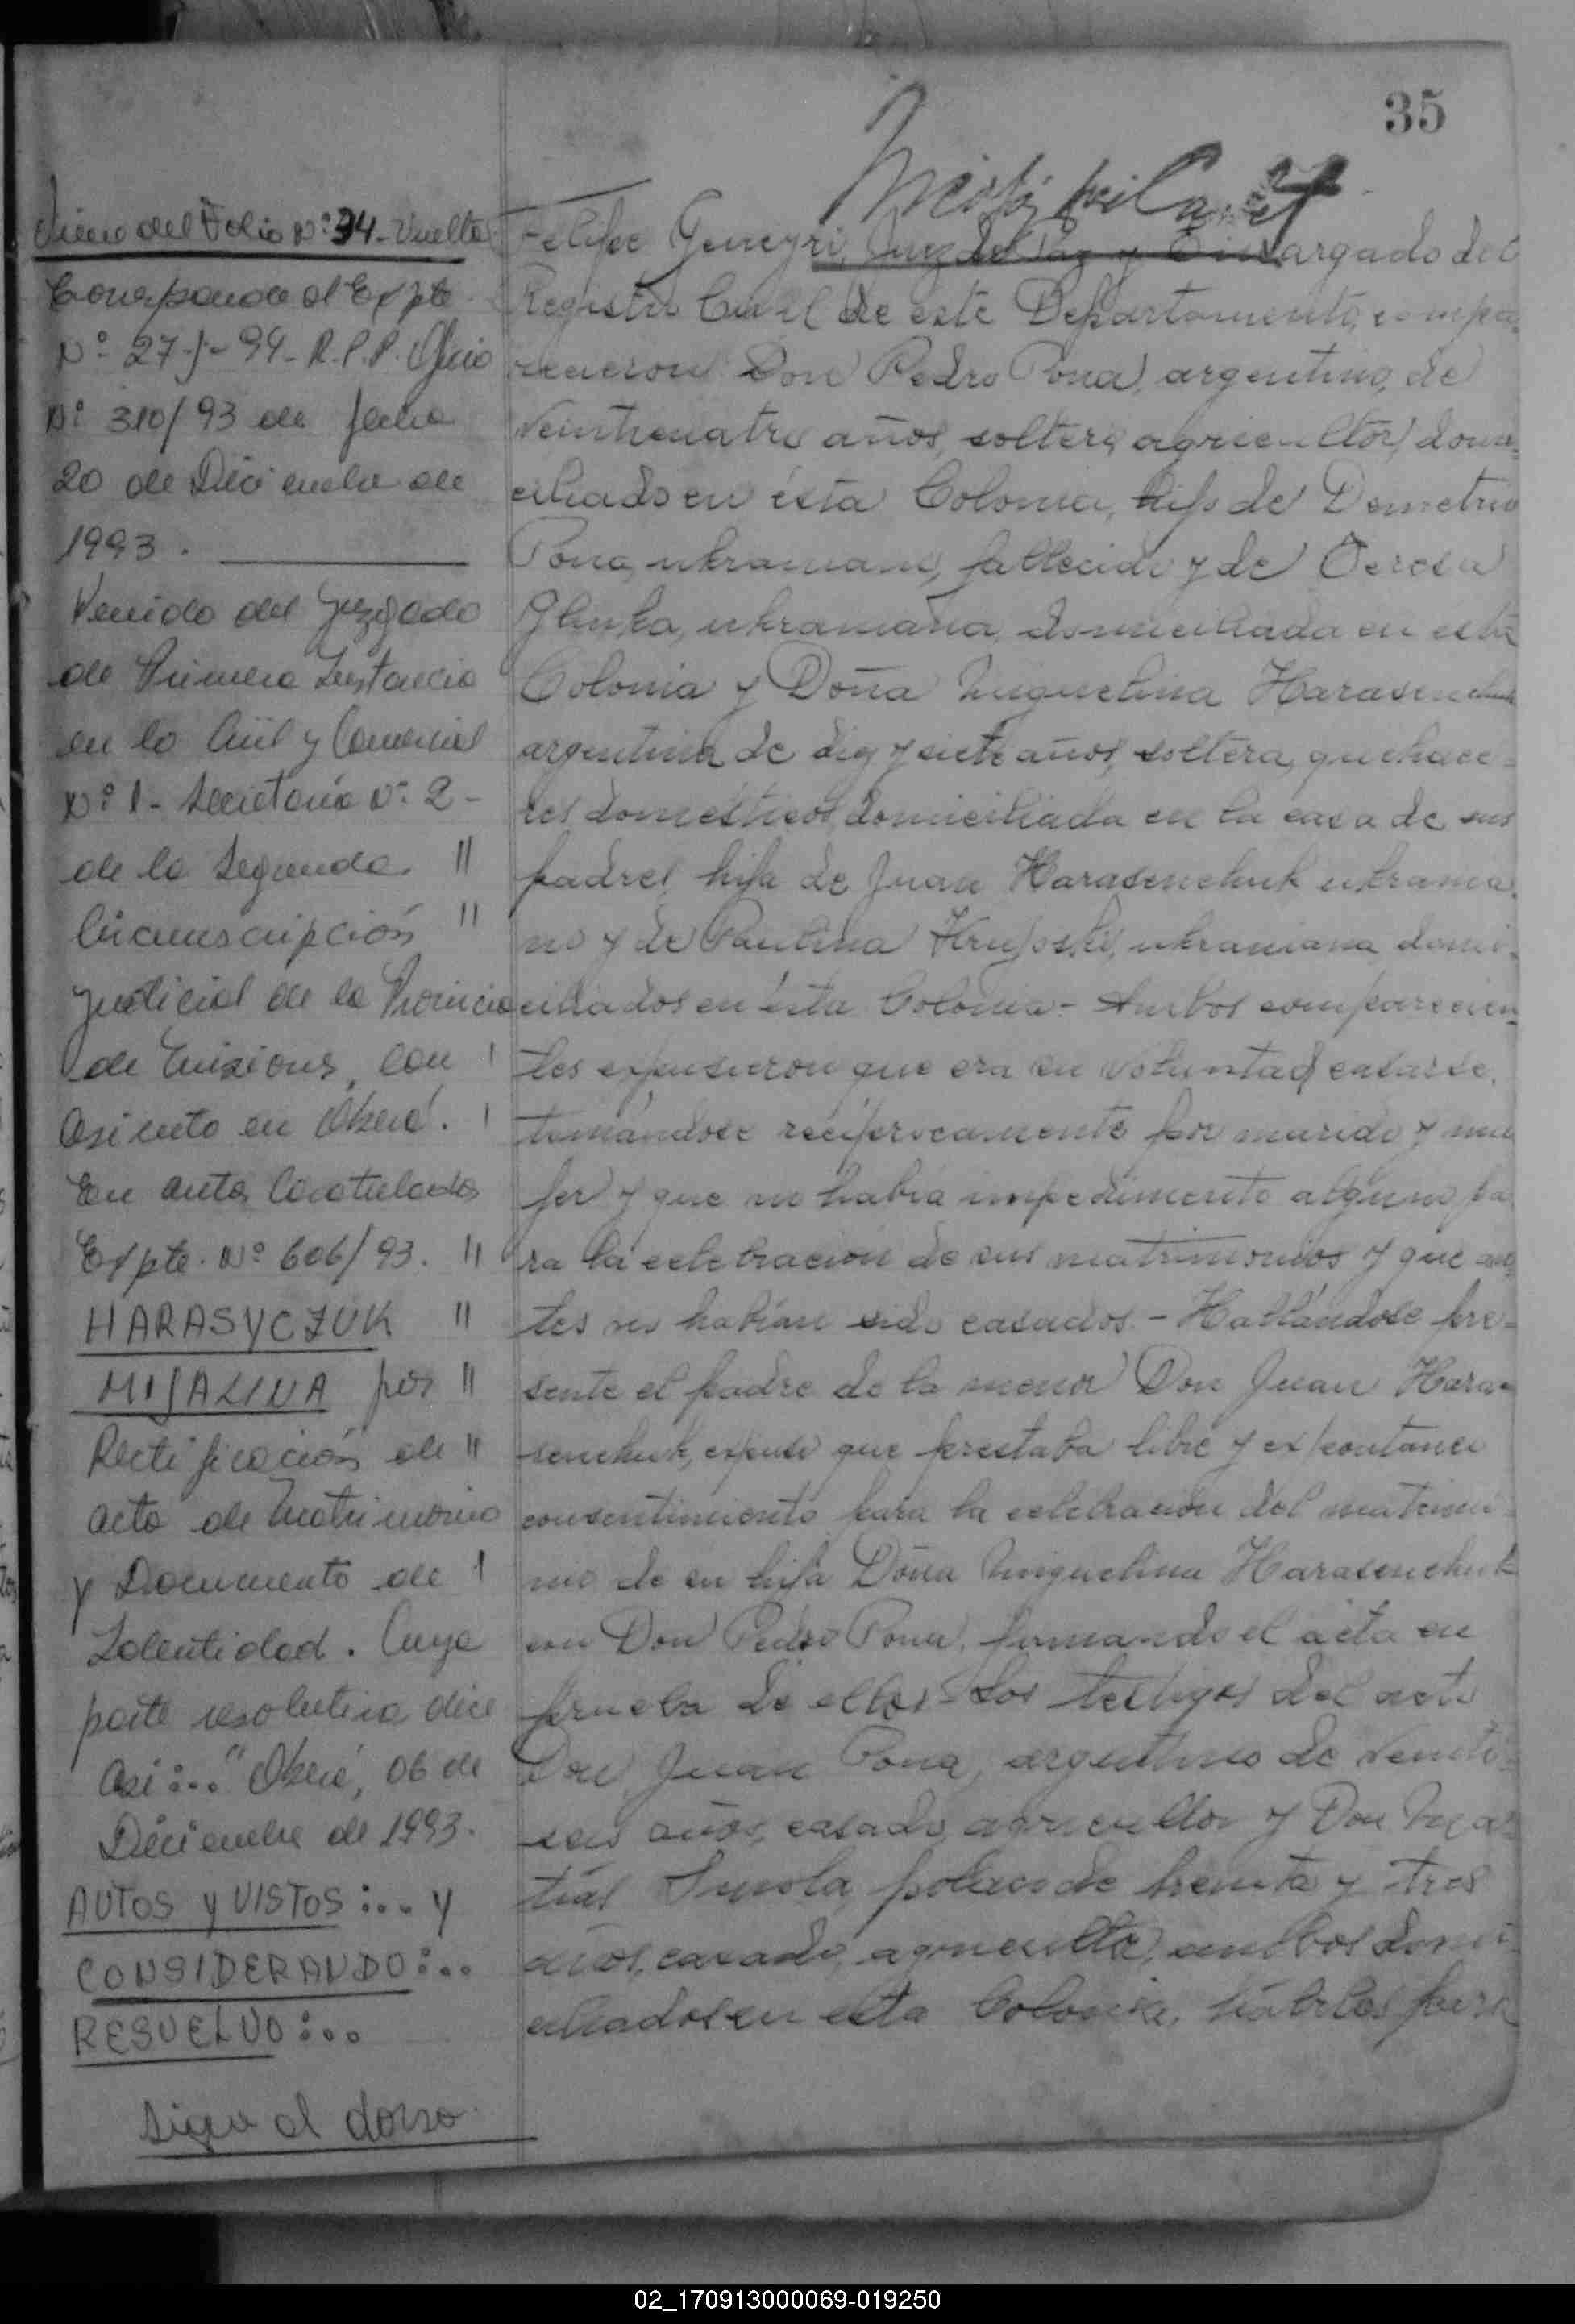 35
Viene del Folio Nº 34 - Vuelta
Corresponde al Expte
Nº 27-J-94- R.P.P. Oficio
Nº 310/93 de fecha
20 de Diciembre de
1993.
Venido del Juzgado
de Primera Instancia
en lo Civil y Comercial
Nº 1 - Secretaría Nº 2 -
de la Segunda. "
Circunscripción "
Judicial de la Provincia
de Misiones, con '
Asiento en Oberá. '
En autos Caratulados
Expte. Nº 606/93. "
HARASYCZUK "
MIJALINA por "
Rectificación de "
acta de Matrimonio
y Documento de '
Identidad. Cuya
parte resolutiva dice
Así:.." Oberá, 06 de
Diciembre de 1993.
AUTOS y VISTOS:... y
CONSIDERANDO:..
RESUELVO:..
Sigue al dorso
Felipe Juez de Paz y Encargado del
Registro Civil de este Departamento, compa-
recieron Don Pedro Pona, argentino, de
veinticuatro años, soltero, agricultor, domi-
ciliado en ésta Colonia, hijo de Demetrio
Pona, ukraniano, fallecido y de Teresa
Glinka, ukraniana, domiciliada en esta
Colonia y Doña Miguelina Harasenchuk
argentina de diez y siete años, soltera, quehace-
res domesticos, domiciliada en la casa de sus
padres, hija de Juan Harasenchuk ukrania-
no y de Paulina ukraniana domi-
ciliados en ésta Colonia.- Ambos comparecien-
tes expusieron que era su voluntad casarse,
tomándose recíprocamente por marido y mu-
jer y que no había impedimento alguno pa-
ra la celebracion de sus matrimonios y que an-
tes no habían sido casados.- Hallándose pre-
sente el padre de la menor Don Juan Hara-
senchuk, expuso que prestaba libre y expontaneo
consentimiento para la celebracion del matrimo-
nio de su hija Doña Miguelina Harasenchuk
con Don Pedro Pona, firmando el acta en
prueba de ello.- Los testigos del acto
Don Juan Pona, argentino de veinti-
seis años, casado, agricultor y Don Ma-
tías polaco de treinta y tres
años, casado, agricultor, ambos domi-
ciliados en esta Colonia, hábiles para
02_170913000069-019250